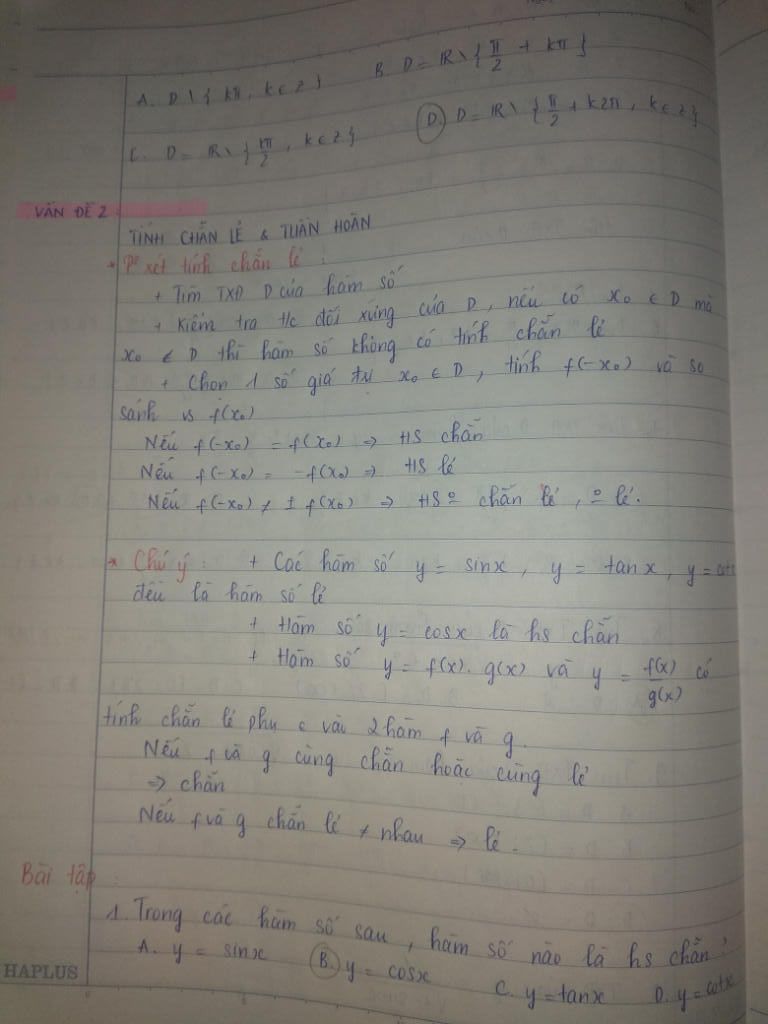 A. D \ { kπ, k ∈ Z }    B. D = R \ { π/2 + kπ }
C. D = R \ { kπ/2, k ∈ Z }    D. D = R \ { π/2 + k2π, k ∈ Z }
VẤN ĐỀ 2 :
TÍNH CHẴN LẺ & TUẦN HOÀN
* P² xét tính chẵn lẻ :
+ Tìm TXĐ D của hàm số
+ Kiểm tra t/c đối xứng của D, nếu có x₀ ∈ D mà
x₀ ∉ D thì hàm số không có tính chẵn lẻ
+ Chọn 1 số giá trị x₀ ∈ D, tính f(-x₀) và so
sánh vs f(x₀)
Nếu f(-x₀) = f(x₀) => HS chẵn
Nếu f(-x₀) = -f(x₀) => HS lẻ
Nếu f(-x₀) ≠ ± f(x₀) => HS º chẵn lẻ, º lẻ.
* Chú ý : + Các hàm số y = sinx, y = tanx, y = cotx
đều là hàm số lẻ
+ Hàm số y = cosx là hs chẵn
+ Hàm số y = f(x).g(x) và y = f(x)/g(x) có
tính chẵn lẻ phụ c vài 2 hàm f và g.
Nếu f và g cùng chẵn hoặc cùng lẻ
=> chẵn
Nếu f và g chẵn lẻ ≠ nhau => lẻ.
Bài tập :
1. Trong các hàm số sau, hàm số nào là hs chẵn?
A. y = sinx    B. y = cosx    C. y = tanx    D. y = cotx
HAPLUS